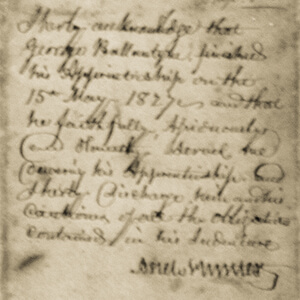 I hereby acknowledge that
George Ballantyne finished
his Apprenticeship on the
15th May 1827 and that
he faithfully,
and Honestly Served me
During his Apprenticeship and
I hereby Discharge him and his
of all the obligations
contained in his Indenture